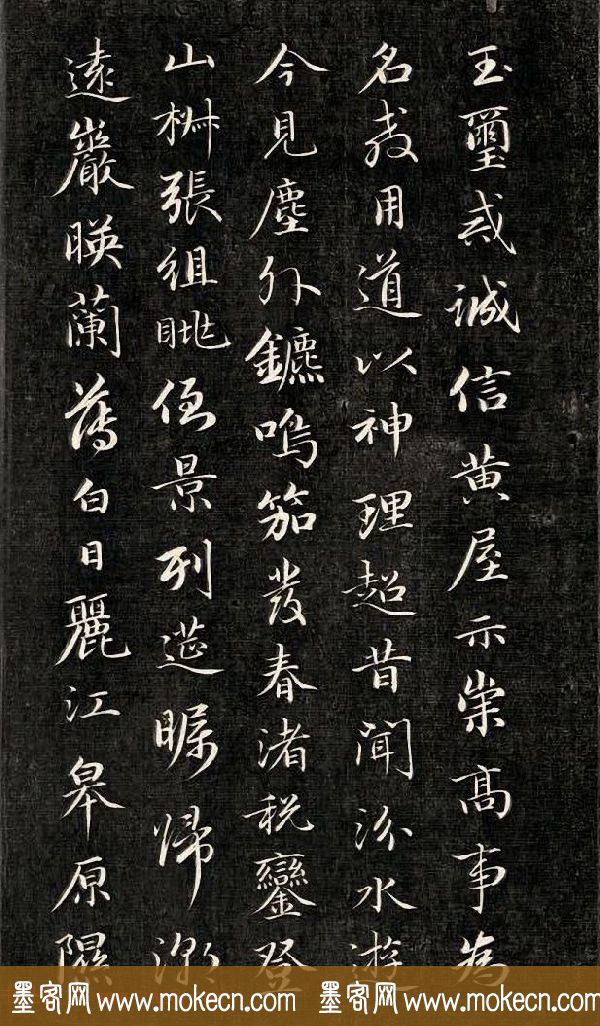 玉璽戒誠信黄屋示崇髙事為
名教用道以神理超昔聞汾水遊
今見塵外鑣鳴笳發春渚税鑾登
山椒張組眺倒景列筵矚歸潮
遠巖暎蘭薄白日麗江皋原隰
墨客网 www.mokecn.com 墨客网 www.mokecn.com